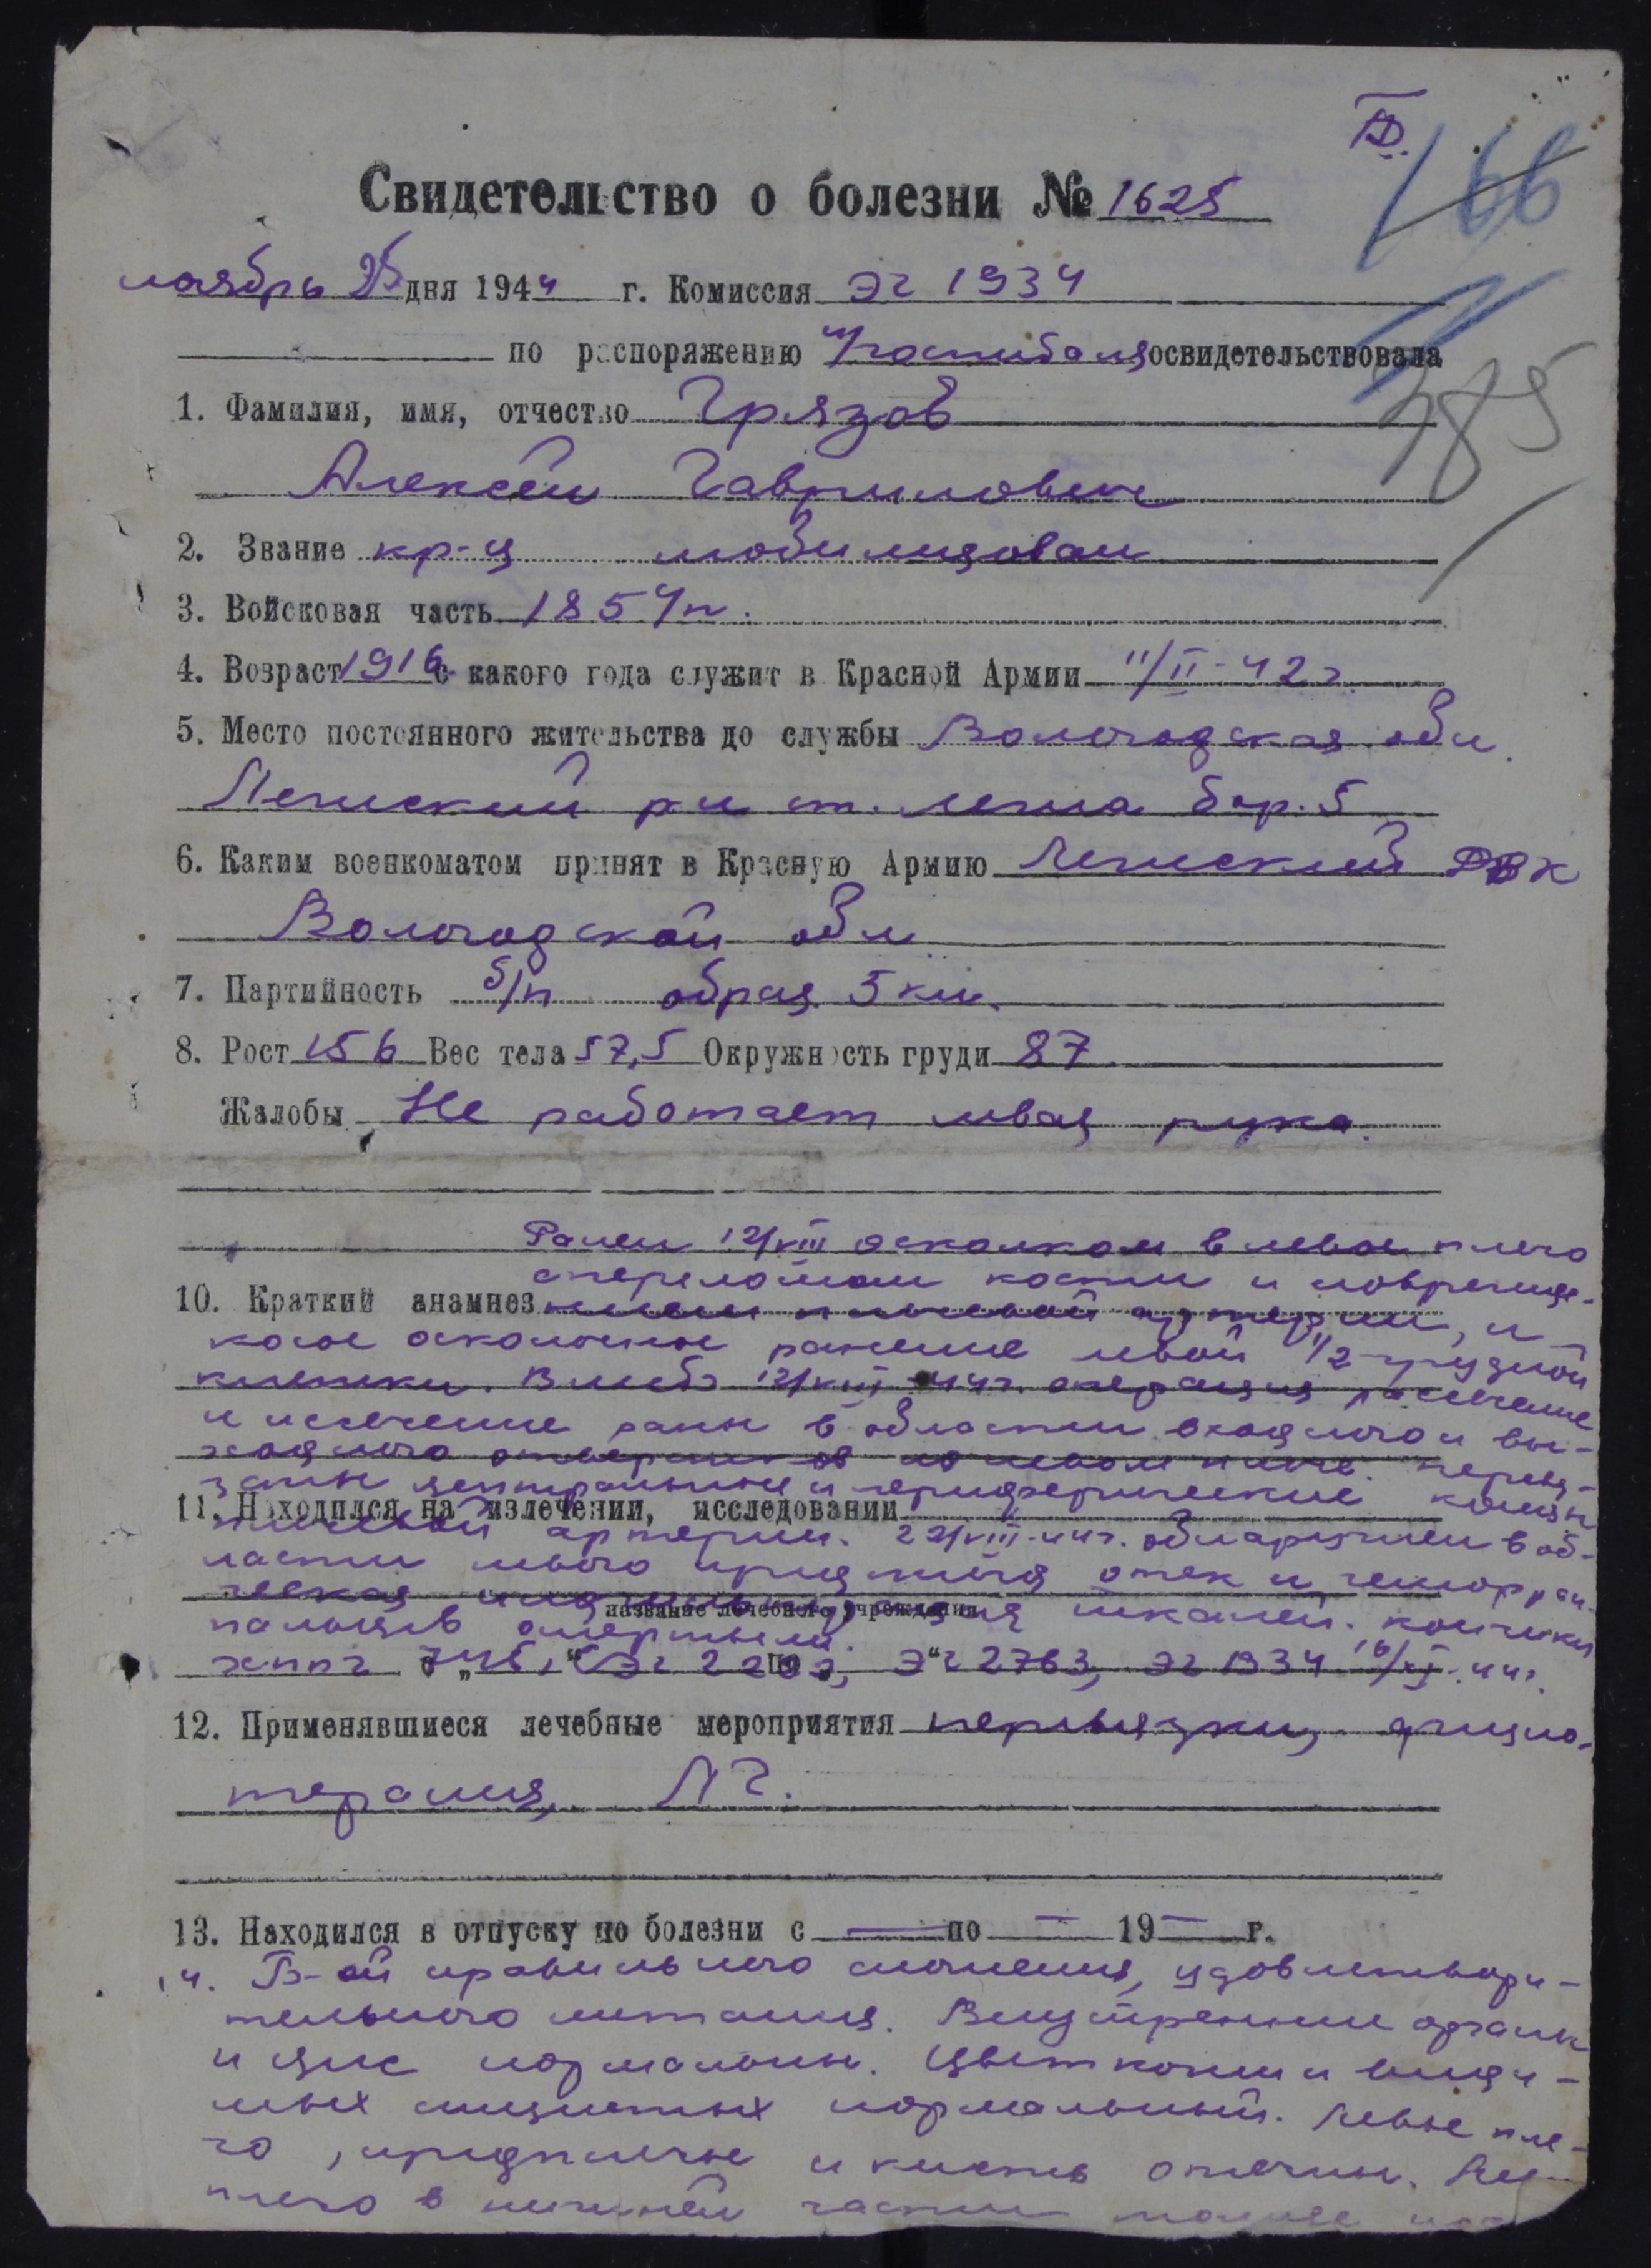 166
Свидетельство о болезни № 1625
ноябрь 25 дня 1944 г. Комиссия ЭГ 1934
по распоряжению н/госпиталя освидетельствовала
385
1. Фамилия, имя, отчество Грязов
Алексей Гаврилович
2. Звание кр-ц мобилизован
3. Войсковая часть 185 п.
4. Возраст 1916 с какого года служит в Красной Армии 11/II-42 г.
5. Место постоянного жительства до службы Вологодская обл.
Лежский р-н ст. Лежа бар. 5
6. Каким военкоматом принят в Красную Армию Лежский РВК
Вологодской обл
7. Партийность б/п образ. 5 кл.
8. Рост 156 Вес тела 57,5 Окружность груди 87
Жалобы Не работает левая рука.
Ранен 12/VIII осколком в левое плечо
с переломом кости и поврежде-
10. Краткий анамнез нием плечевой артерии, и
косое осколочное ранение левой 1/2 грудной
клетки. В медб 12/VIII-44г. операция рассечение
и иссечение раны в области входного и вы-
ходного отверстия на левом плече. перевя-
заны центральный и периферические концы
11. Находился на излечении, исследовании
плечевой артерии. 22/VIII-44г. обнаружен в об-
ласти левого предплечья отек и геморраги-
ческая инфильтрация тканей. кончики
название лечебного учреждения
пальцев омертвели.
хппг 745, ЭГ ЭГ 2763, ЭГ 1934 16/XI-44г.
12. Применявшиеся лечебные мероприятия перевязки, физио-
терапия, ЛГ.
13. Находился в отпуску по болезни с — по — 19 — г.
14. Б-ой правильного сложения, удовлетвори-
тельного питания. Внутренние органы
и цнс нормальны. Цвет кожи и види-
мых слизистых нормальный. Левое пле-
чо, предплечье и кисть отечны.
плечо в нижней части